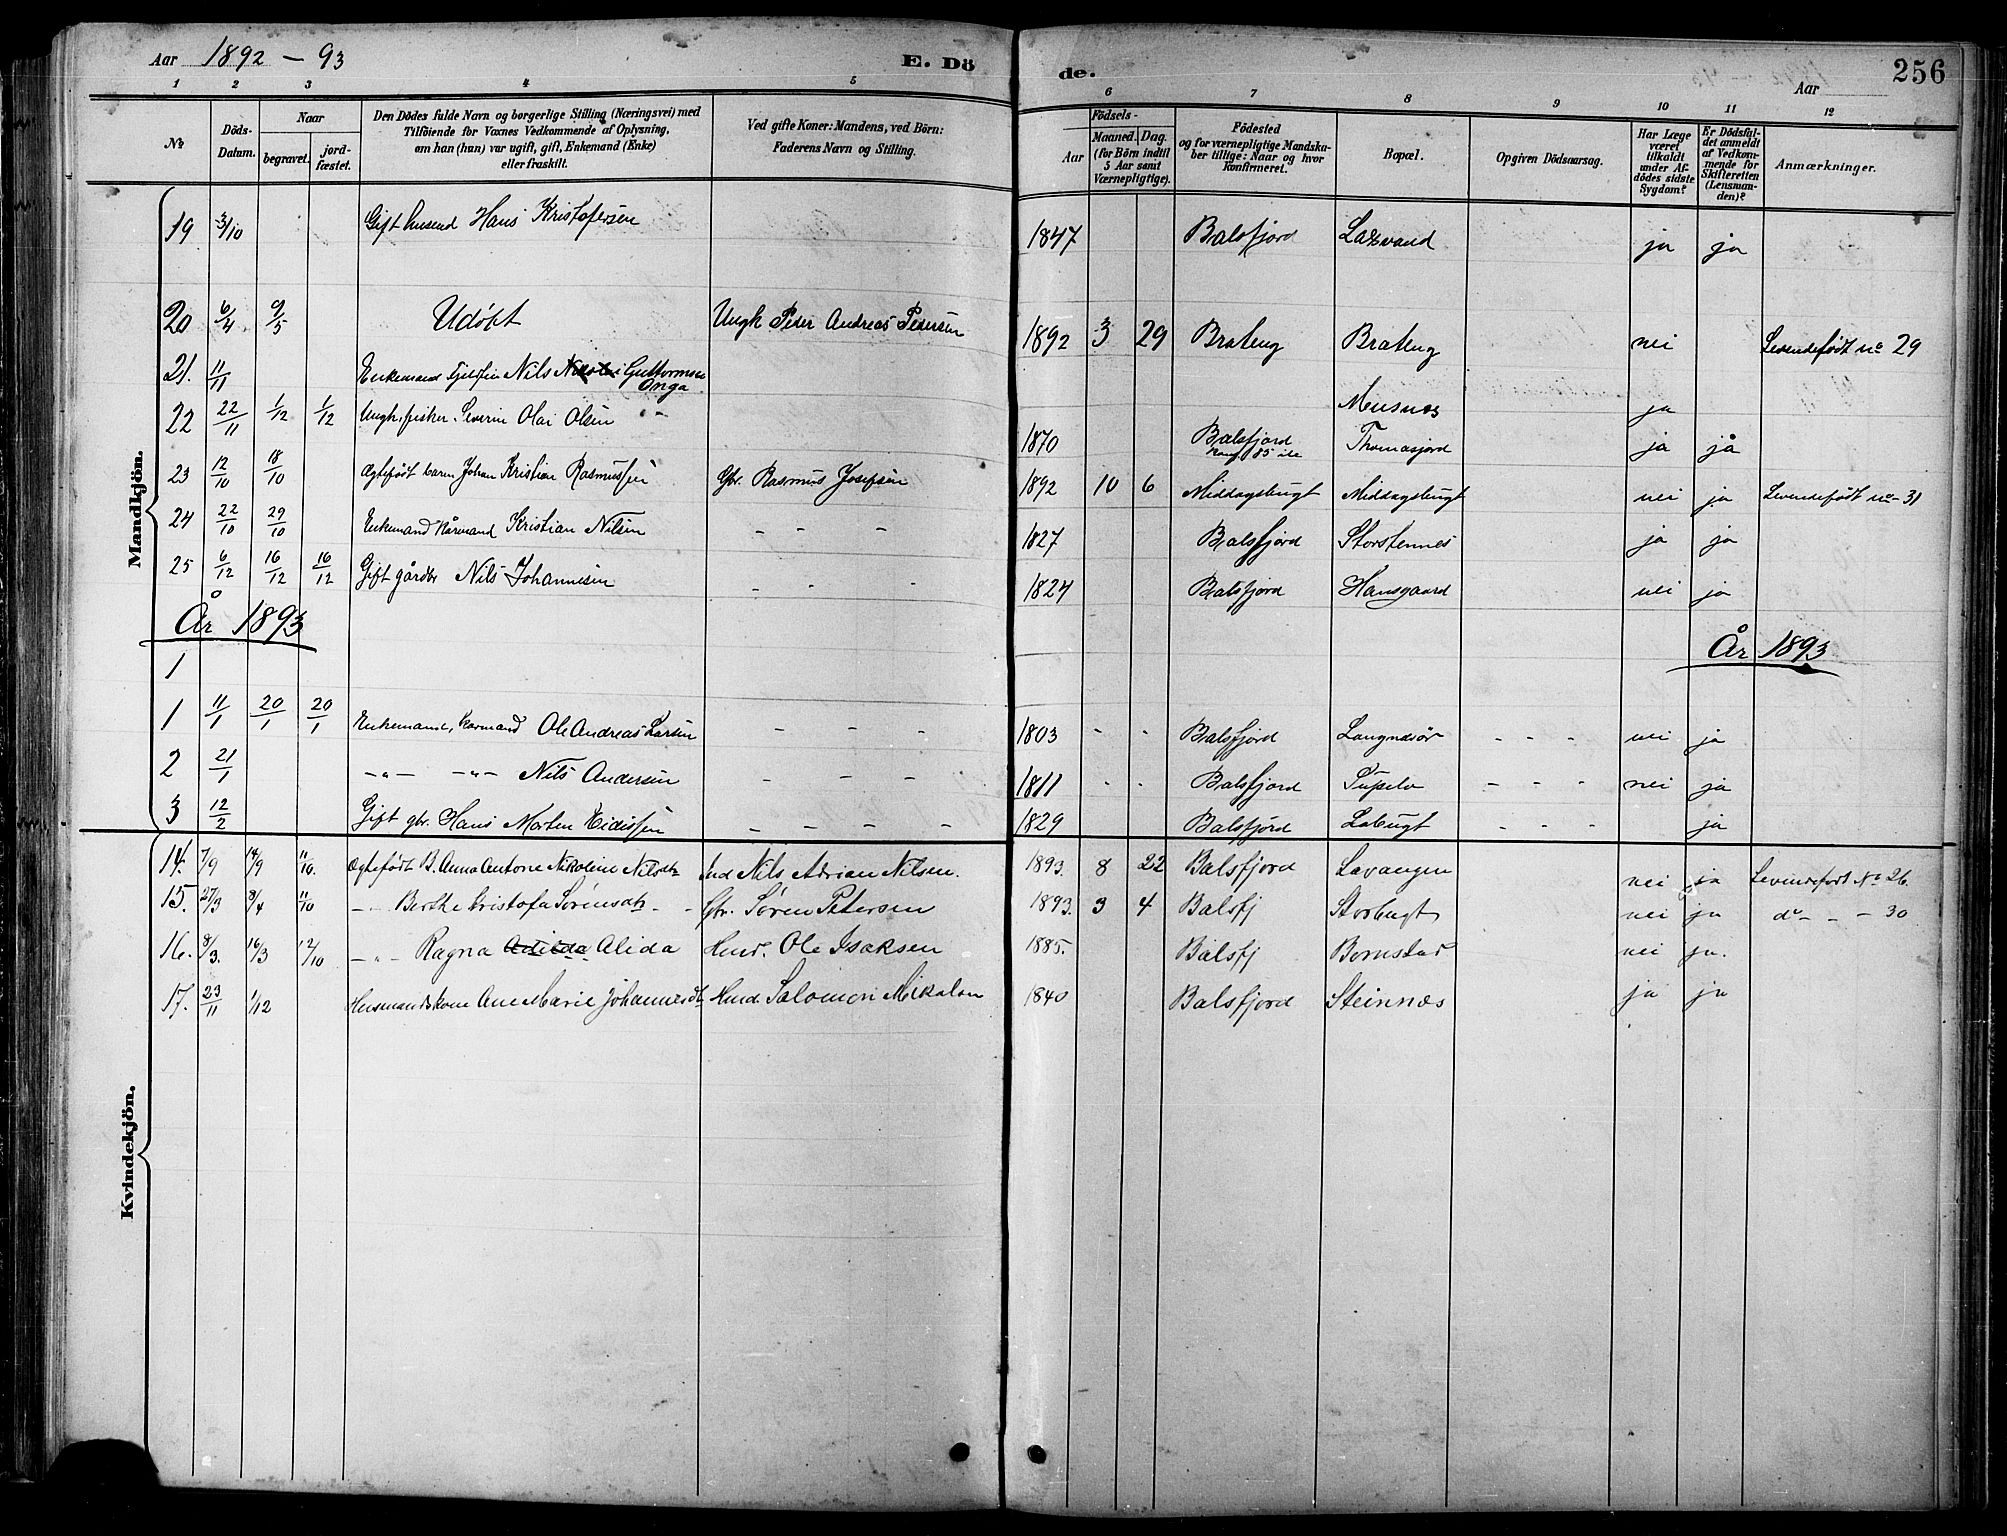 Aar 1892 - 93 E. Dö de. Aar 256
1 2 3 4 5 6 7 8 9 10 11 12
No
Döds-Datum.
Naar
begravet.
jord-fæstet.
Den Dödes fulde Navn og borgerlige Stilling (Næringsvei) med
Tilföiende for Voxnes Vedkommende af Oplysning,
om han (hun) var ugift, gift, Enkemand (Enke)
eller fraskilt.
Ved gifte Koner: Mandens, ved Börn:
Faderens Navn og Stilling.
Födsels-
Aar
Maaned. Dag.
(for Börn indtil
5 Aar samt
Værnepligtige).
Födested
og for værnepligtige Mandska-
ber tillige: Naar og hvor
konfirmeret.
Bopæl.
Opgiven Dödsaarsag.
Har Læge
været
tilkaldt
under Af-
dödes sidste
Sygdom?
Er Dödsful-
det anmeldt
af Vedkom-
mende for
Skifteretten
(Lensman-
den)?
Anmærkninger.
Mandkjön.
19 3/10 Gift Hans Kristofersen 1847 Balsfjord ja ja
20 6/4 9/5 Udøbt Ungk Peder Andreas Pedersen 1892 3 29 Brateng Brateng nei Levendefødt no 29
21. 11/11 Enkemand Nils Guttormsen Onga ja
22 22/11 1/12 1/12 Ungk. fisker. Severin Olai Olsen 1870 Balsfjord Thomasjord ja ja
23 12/10 18/10 Ægtefødt barn Johan Kristian Rasmussen Gbr. Rasmus Josefsen 1892 10 6 Middagsbugt Middagsbugt nei ja Levendefødt no 31
24 22/10 29/10 Enkemand Kårmand Kristian Nilsen - - - 1827 Balsfjord Storstennes ja ja
25 6/12 16/12 16/12 Gift gårdbr Nils Johannesen - - - 1824 Balsfjord Hansgaard nei ja
År 1893 År 1893
1
1 11/1 20/1 20/1 Enkemand, Kormand Ole Andreas Larsen - - - 1803 - - Balsfjord - - - nei ja
2 21/1 -"- -"- Nils Andersen - - - 1811 - - Balsfjord - - - nei ja
3 12/2 Gift gbr. Hans Morten Eidissen - - - - 1829 Balsfjord Labugt - - - ja
Kvindekjön.
14. 7/9 14/9 11/10. Ægtefødt B. Anna Antone Nikoline Nilsdtr Ind Nils Adrian Nilsen. 1893. 8 22 Balsfjord Lavangen nei ja Levendefødt No 26.
15. 27/3 8/4 11/10 -"- Berthe Kristofa Sørensdtr Gbr. Søren Petersen 1893. 3 4 Balsfj Storbugt nei ja do - - - 30
16. 8/3. 16/3 12/10 -"- Ragna Alida Hmd. Ole Isaksen 1885. Balsfj Bomstad nei ja.
17. 23/11 1/12 Husmandskone Ane Marie Johannesdtr Hmd. Salomon Mikalsen 1840 Balsfjord Steinnæs ja ja